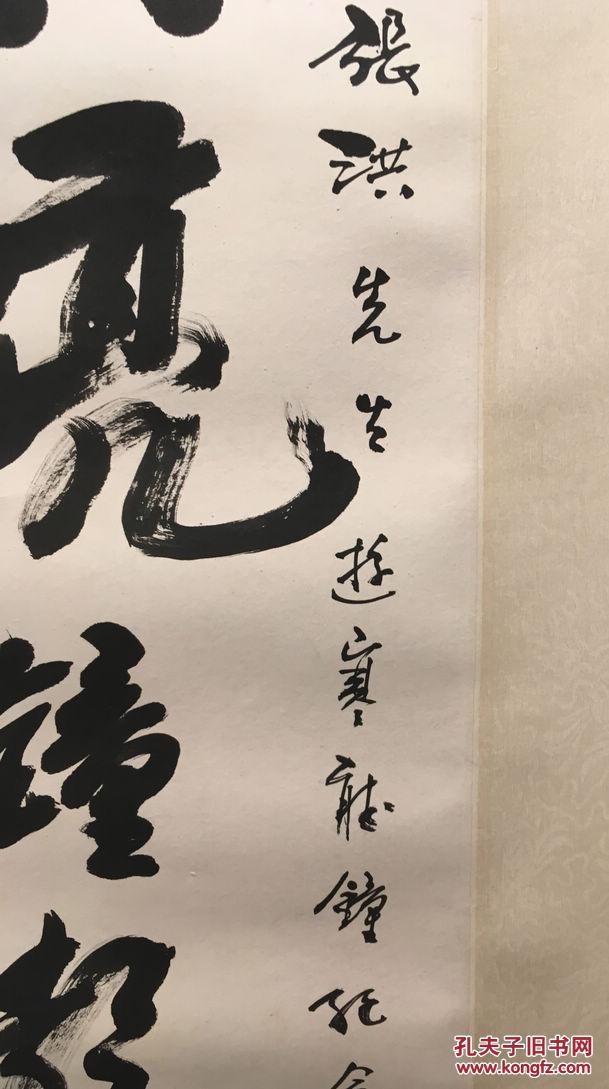 張洪先生遊寒聽鐘紀
亮鐘
孔夫子旧书网
www.kongfz.com